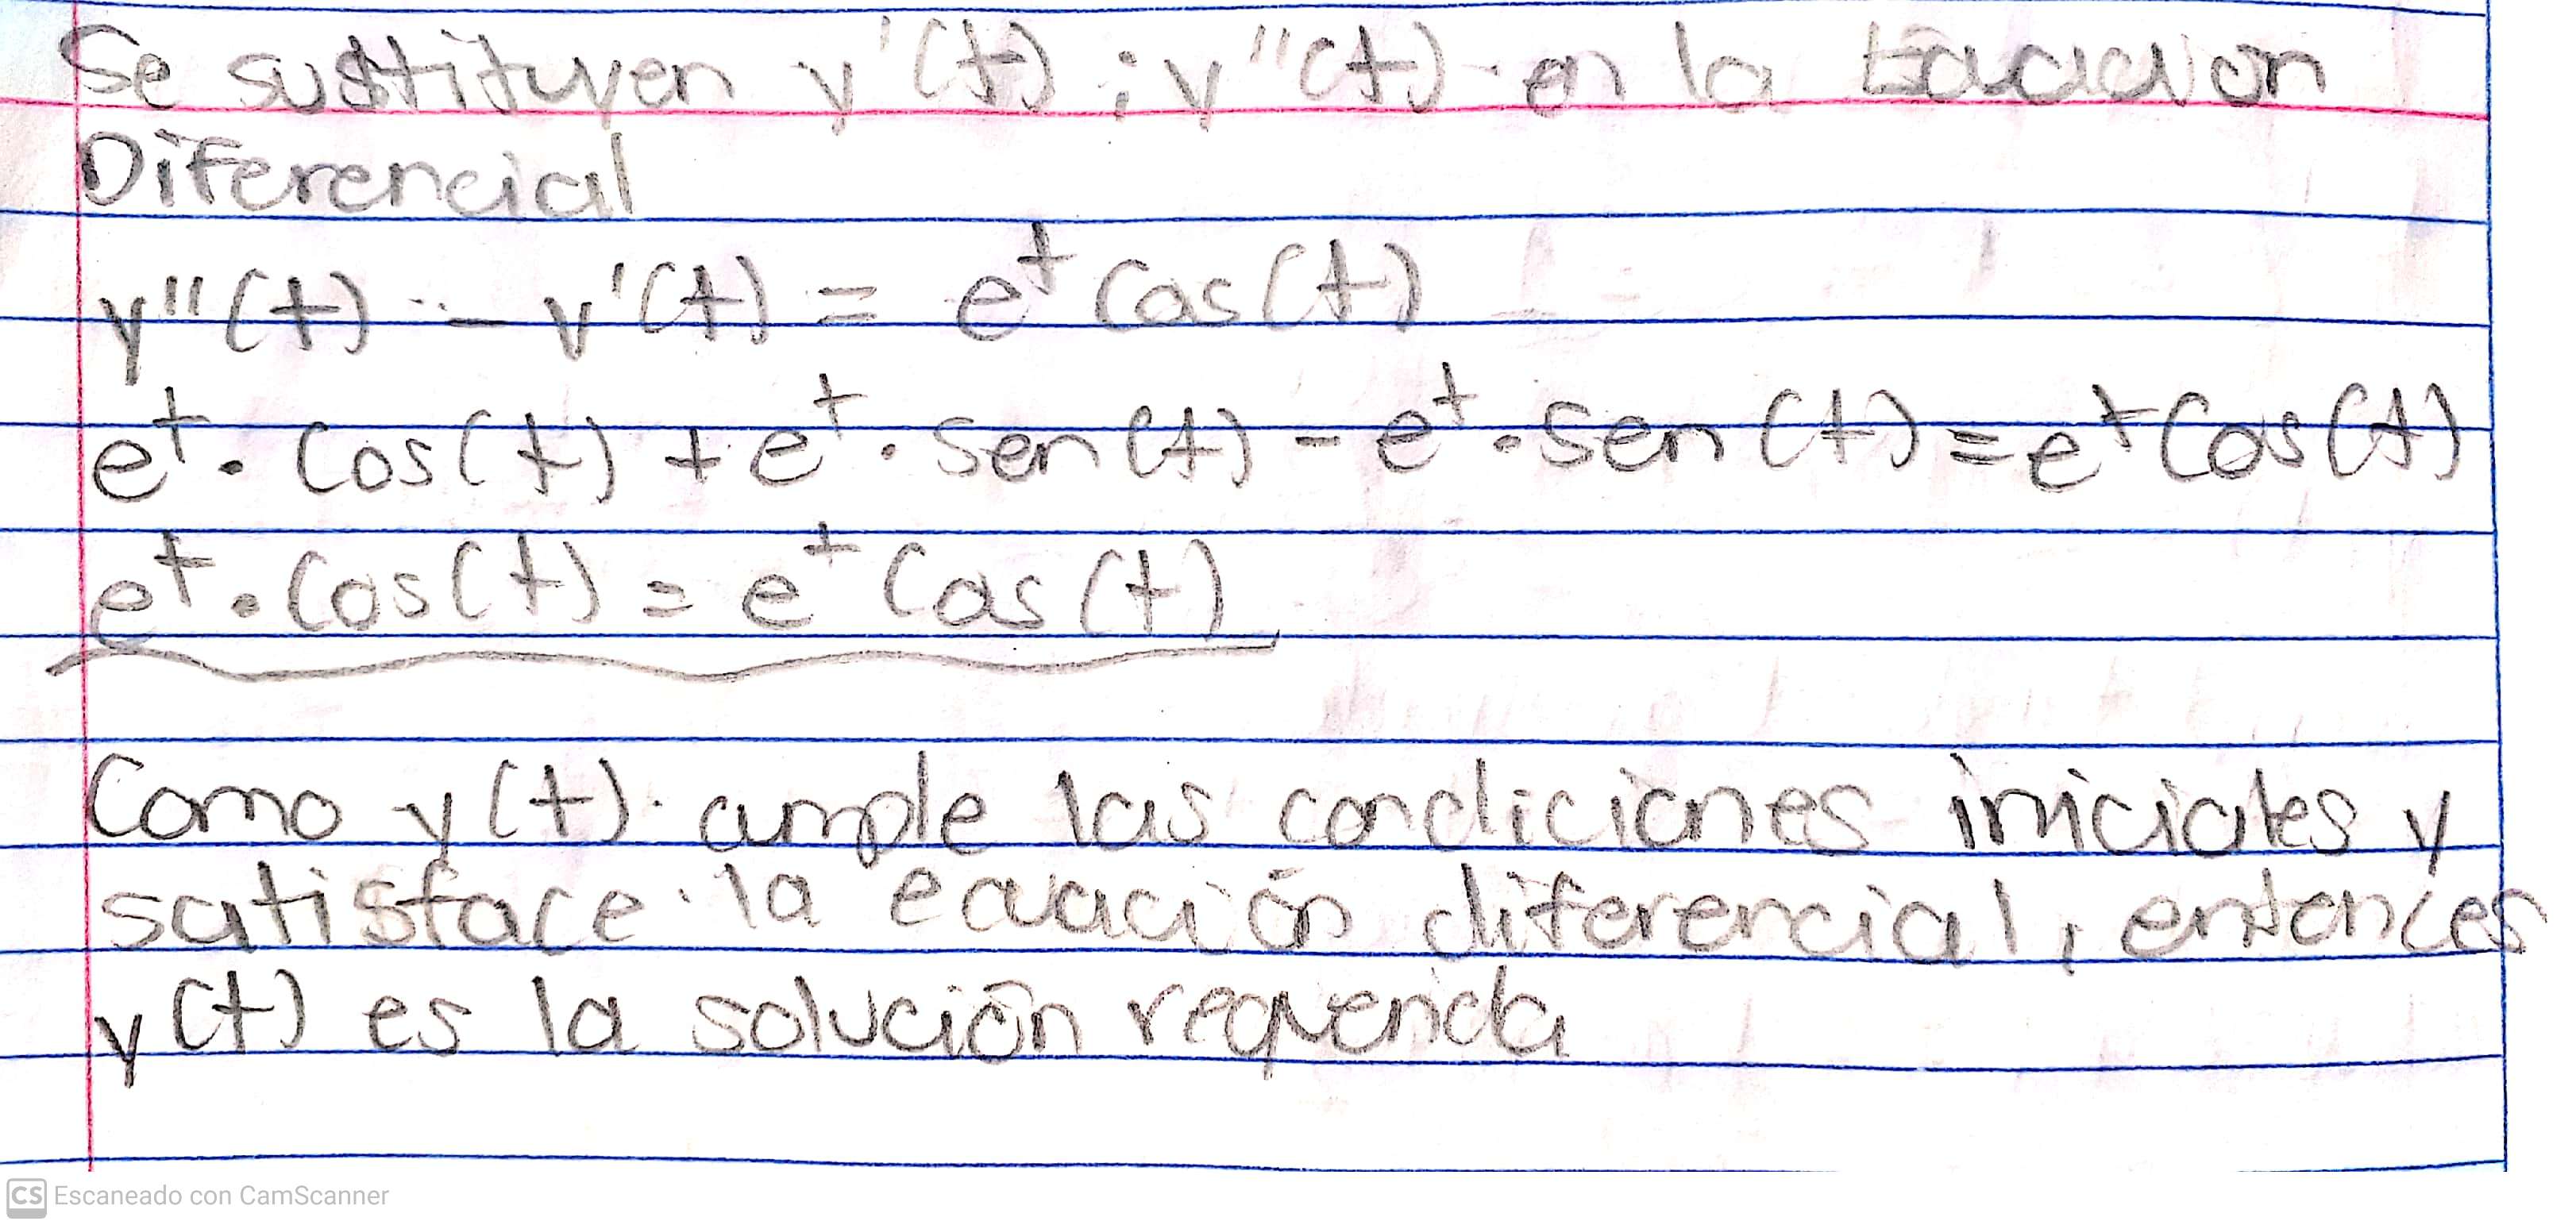 Se sustituyen y'(t) ; y''(t) en la Ecuación
Diferencial
y''(t) - y'(t) = e^t Cos(t)
e^t · Cos(t) + e^t · Sen(t) - e^t · Sen(t) = e^t Cos(t)
e^t · Cos(t) = e^t Cos(t)
Como y(t) cumple las condiciones iniciales y
satisface la ecuación diferencial, entonces
y(t) es la solución requerida
CS Escaneado con CamScanner